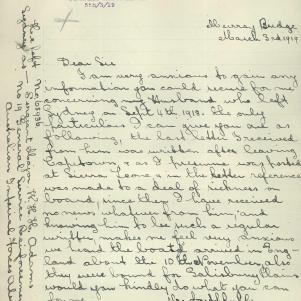 Murray Bridge
March 3rd 1919
Dear Sir
I am very anxious to gain any
information you could secure for me
concerning my Husband who left
Sydney on Sept 4th 1918. The only
particulars I can give you are as
follows, the last letter I received
from him was written after leaving
Capetown & as I presume was posted
at Sierra Leone, & in the letter reference
was made to a deal of sickness on
board, since then I have received
no news whatever from him, and
knowing him to be such a regular
writer, makes me feel very anxious
I heard the boat arrived in Eng-
land about the 10th November, also
they were bound for Salisbury Plains
would you kindly do what you can
for me
He left
Sydney as
No 63936
Adams
No 19 General Service Reinforcements
Australian Imperial Forces Abroad